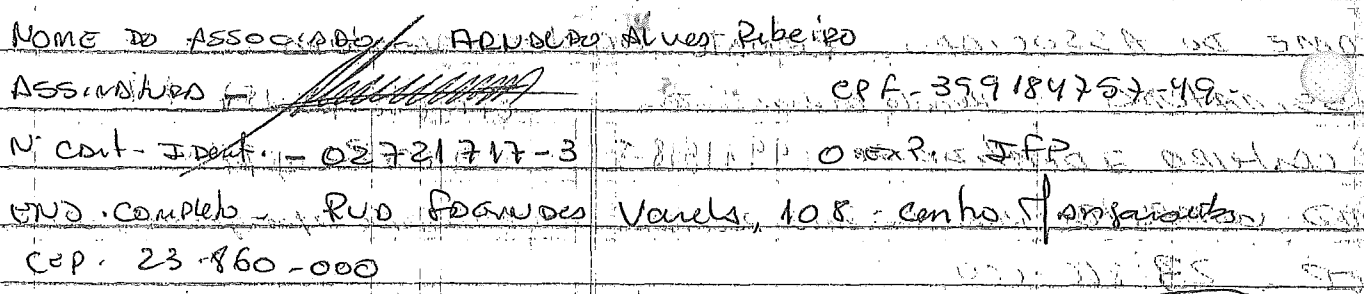 NOME DO ASSOCIADO - ARNALDO Alves Ribeiro
ASSINATURA - CPF - 399184757-49-
Nº Cart - Ident. - 02721717-3 O. EXP. IFP
END. Completo - RUA FAGUNDES Varela, 108 - Centro Mangaratiba
CEP. 23-860-000